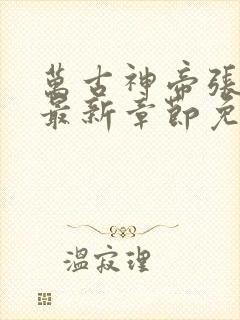 萬古神帝張
最新章節免
溫寂理